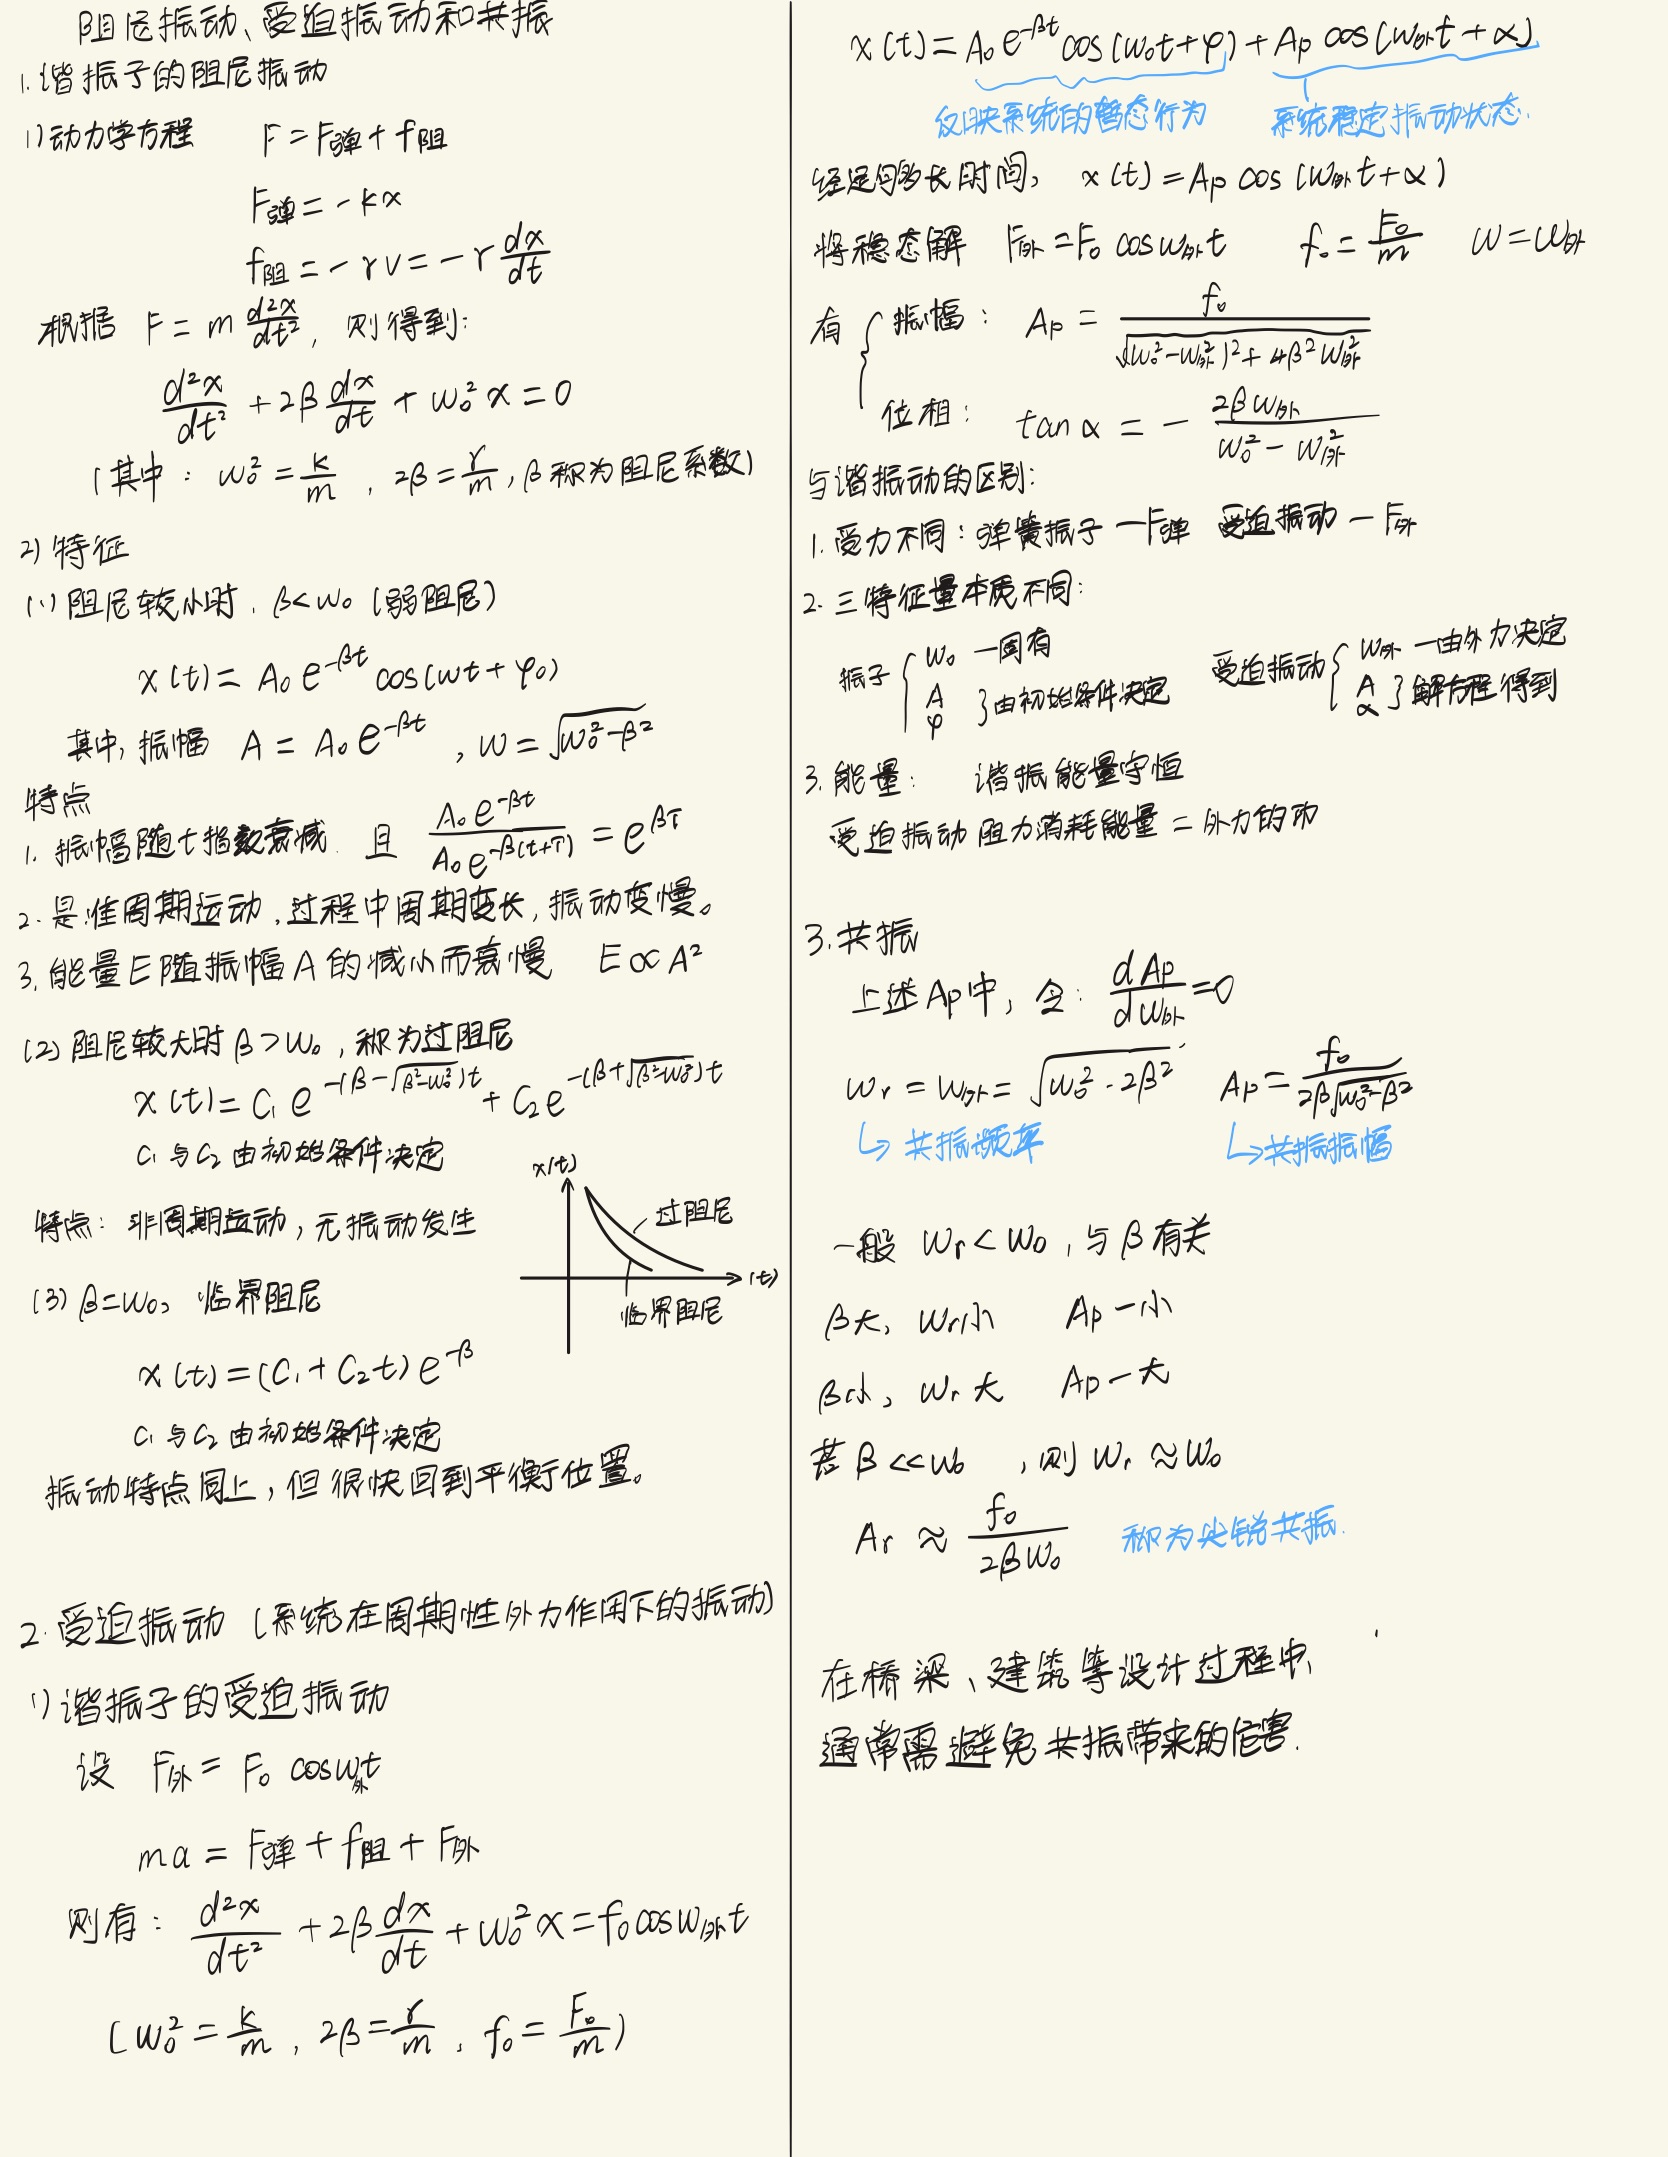 阻尼振动、受迫振动和共振
1.谐振子的阻尼振动
1)动力学方程 F=F弹+f阻
F弹=-kx
f阻=-γv=-γ dx/dt
根据 F=m d²x/dt², 则得到:
d²x/dt² +2β dx/dt + ω₀² x=0
(其中: ω₀²=k/m, 2β=γ/m, β称为阻尼系数)
2)特征
(1)阻尼较小时, β<ω₀ (弱阻尼)
x(t)= A₀ e^{-βt} cos(ωt+φ₀)
其中,振幅 A = A₀ e^{-βt}, ω=√(ω₀²-β²)
特点
1. 振幅随t指数衰减. 且 A₀e^{-βt}/A₀e^{-β(t+T)} = e^{βT}
2.是准周期运动,过程中周期变长,振动变慢。
3.能量E随振幅A的减小而衰慢 E∝A²
(2)阻尼较大时β>ω₀,称为过阻尼
x(t)=C₁ e^{-(β-√(β²-ω₀²))t} + C₂e^{-(β+√(β²-ω₀²))t}
C₁与C₂由初始条件决定
特点: 非周期运动,无振动发生
x(t)
过阻尼
(t)
临界阻尼
(3) β=ω₀, 临界阻尼
x(t)=(C₁+C₂t)e^{-β}
C₁与C₂由初始条件决定
振动特点同上,但很快回到平衡位置。
2.受迫振动 (系统在周期性外力作用下的振动)
1)谐振子的受迫振动
设 F外= F₀ cosω外t
ma = F弹+f阻+F外
则有: d²x/dt² +2β dx/dt +ω₀²x=f₀cosω外t
(ω₀²=k/m, 2β=γ/m, f₀=F₀/m)
x(t)=A₀e^{-βt}cos(ω₀t+φ)+Ap cos(ω外t+α)
仅映系统的暂态行为 系统稳定振动状态.
经足够多长时间, x(t)=Ap cos(ω外t+α)
将稳态解 F外=F₀ cosω外t f₀=F₀/m ω=ω外
有 { 振幅: Ap = f₀/√((ω₀²-ω外²)²+4β²ω外²)
位相: tanα = - 2βω外/(ω₀²-ω外²)
与谐振动的区别:
1.受力不同:弹簧振子一F弹 受迫振动一F外
2.三特征量本质不同:
振子 { ω₀ 一固有 受迫振动 { ω外 一由外力决定
A φ }由初始条件决定 A α }解方程得到
3.能量: 谐振能量守恒
受迫振动阻力消耗能量=外力的功
3.共振
上述Ap中, 令: dAp/dω外=0
ωr=ω外=√(ω₀²-2β²) Ap=f₀/2β√(ω₀²-β²)
↳ 共振频率 ↳共振振幅
一般 ωr<ω₀,与β有关
β大, ωr小 Ap一小
β小, ωr大 Ap一大
若β<<ω₀ ,则ωr≈ω₀
Ar ≈ f₀/2βω₀ 称为尖锐共振.
在桥梁、建筑等设计过程中,
通常需避免共振带来的危害.